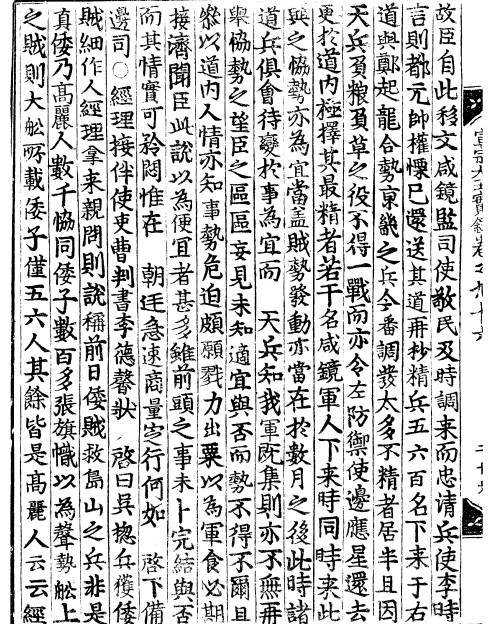 宣宗大王實錄卷之九十六
故臣自此移文咸鏡監司使敬民及時調来而忠清兵使李時
言則都元帥權慄已還送其道再抄精兵五六百名下来于右
道與鄭起龍合勢京畿之兵今番調發太多不精者居半且因
天兵負粮負草之役不得一戰而亦令左防禦使邊應星還去
更於道内極擇其最精者若干名咸鏡軍人下来時同時来此
與之恊勢亦為宜當盖賊勢發動亦當在於數月之後此時諸
道兵俱會待變於事為宜而 天兵知我軍既集則亦不無再
舉恊勢之望臣之區區妄見未知適宜與否而勢不得不爾且
叅以道内人情亦知事勢危迫頗願戮力出粟以為軍食必期
接濟聞臣此說以為便宜者甚多雖前頭之事未卜完結與否
而其情實可矜悶惟在 朝廷急速商量定行何如 啓下備
邊司○經理接伴使吏曹判書李德馨狀 啓曰吳摠兵獲倭
賊細作人經理拿来親問則說稱前日倭賊救島山之兵非是
真倭乃髙麗人數千恊同倭子數百多張旗幟以為聲勢舡上
之賊則大舡所載倭子僅五六人其餘皆是髙麗人云云經